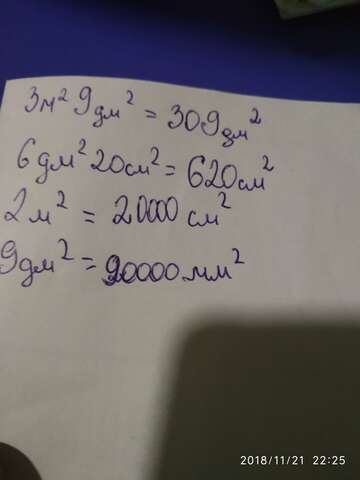 3м² 9дм² = 309дм²
6дм² 20см² = 620см²
2м² = 20000см²
9дм² = 90000мм²
2018/11/21 22:25